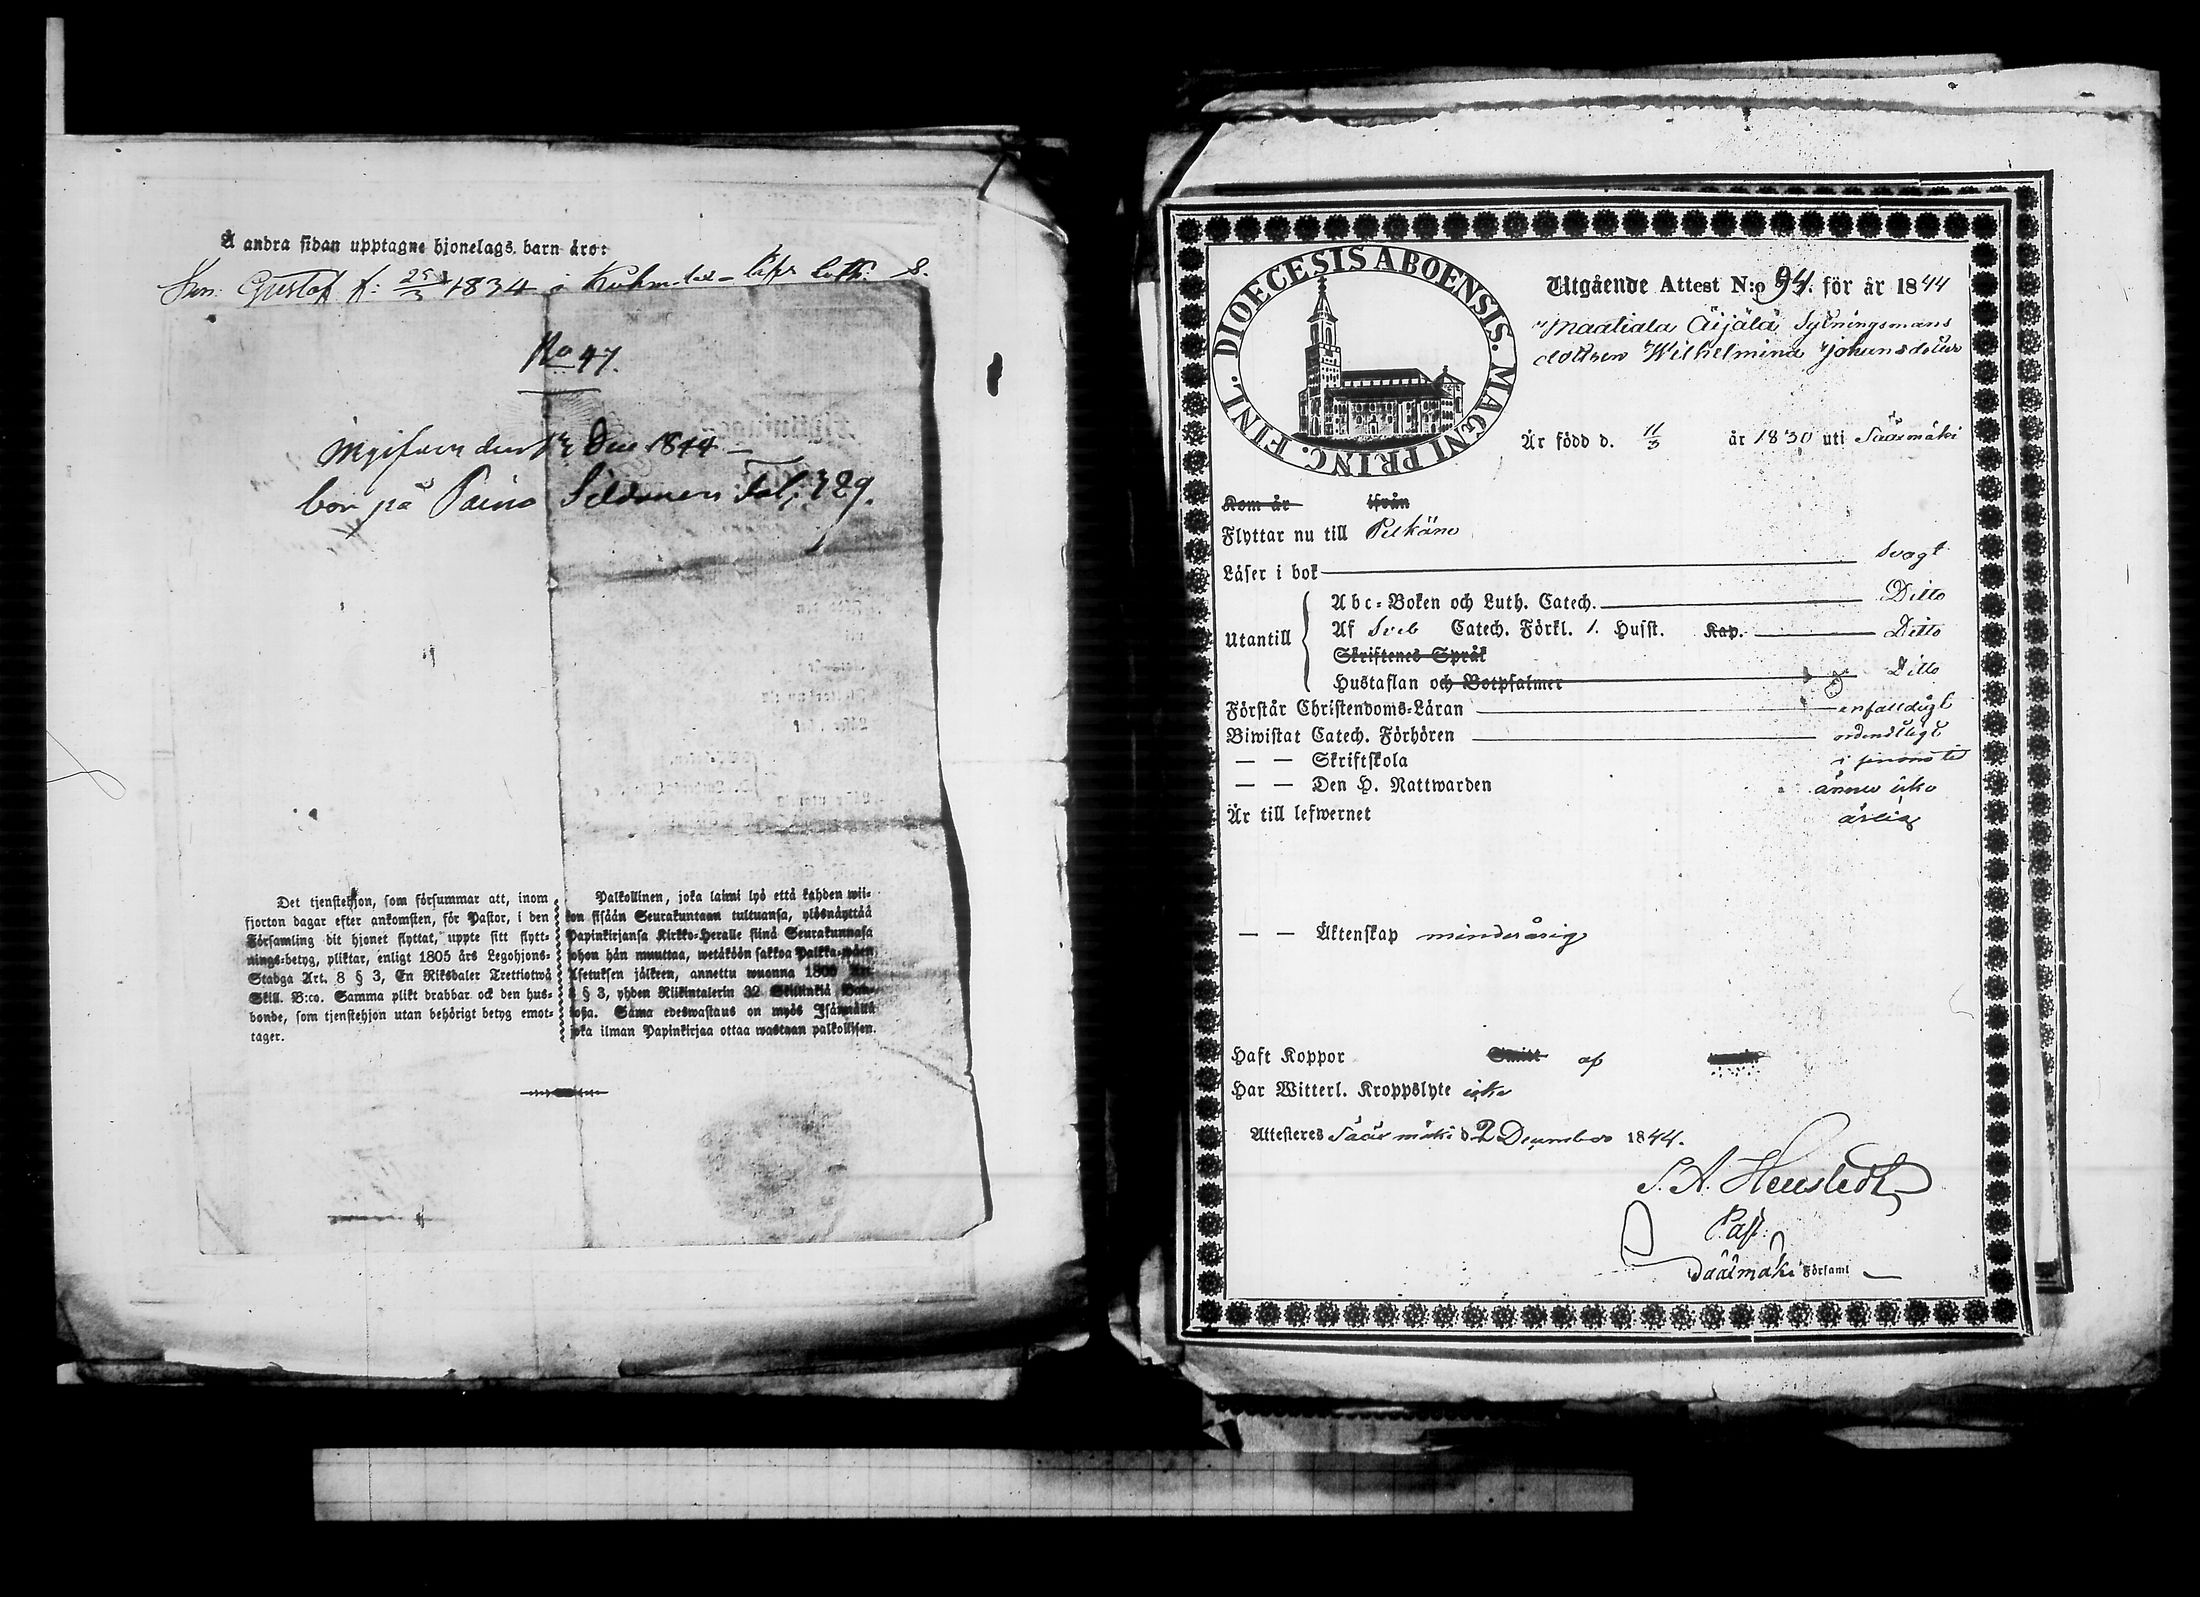 Å andra sidan upptagne hjonelags barn äro:
Son: Gustaf f: 25/3 1834 i Kuhm
No 47.
den Dec 1844
bor på Paino Fol: 729.
Det tjenstehjon, som försummar att, inom
fjorton dagar efter ankomsten, för Pastor, i den
Församling dit hjonet flyttat, uppte sitt flytt-
nings-betyg, pliktar, enligt 1805 års Legohjons-
Stadga Art. 8 § 3, En Riksdaler Trettiotwå
Skill. B:co. Samma plikt drabbar ock den hus-
bonde, som tjenstehjon utan behörigt betyg emot-
tager.
Palkollinen, joka laimi lyö että kahden wii-
kon sisään Seurakuntaan tultuansa, ylösnäyttää
Papinkirjansa Kirkko-Heralle siinä Seurakunnasa
johon hän muuttaa, wetäköön sakkoa Palkka-wäen
Asetuksen jälkeen, annettu wuonna 1805 Art.
8 § 3, yhden Riikintalerin 32 Skillinkiä Ban-
kosa. Sama edeswastaus on myös Isännällä
joka ilman Papinkirjaa ottaa wastaan palkollisen.
DIOECESIS ABOENSIS. MAGNI PRINC. FINL.
Utgående Attest N:o 94. för år 1844
Maatiala Äijälä Sytningsmans
dottren Wilhelmina Johansdotter
Är född d. 11/3 år 1830 uti Sääxmäki
Kom år ifrån
Flyttar nu till Pelkäne
Läser i bok svagt
Utantill
Abc-Boken och Luth. Catech. Ditto
Af Sveb Catech. Förkl. 1. Husst. Kap. Ditto
Skriftenes Språk
Hustaflan och Botpsalmer Ditto
Förstår Christendoms-Läran enfaldigt
Biwistat Catech. Förhören ordentligt
— — Skriftskola i
— — Den H. Nattwarden ännu icke
Är till lefwernet ärlig
— — Äktenskap minderårig
Haft Koppor af
Har Witterl. Kroppslyte icke
Attesteres Sääxmäki d 2 December 1844.
Past.
Sääxmäki Församl